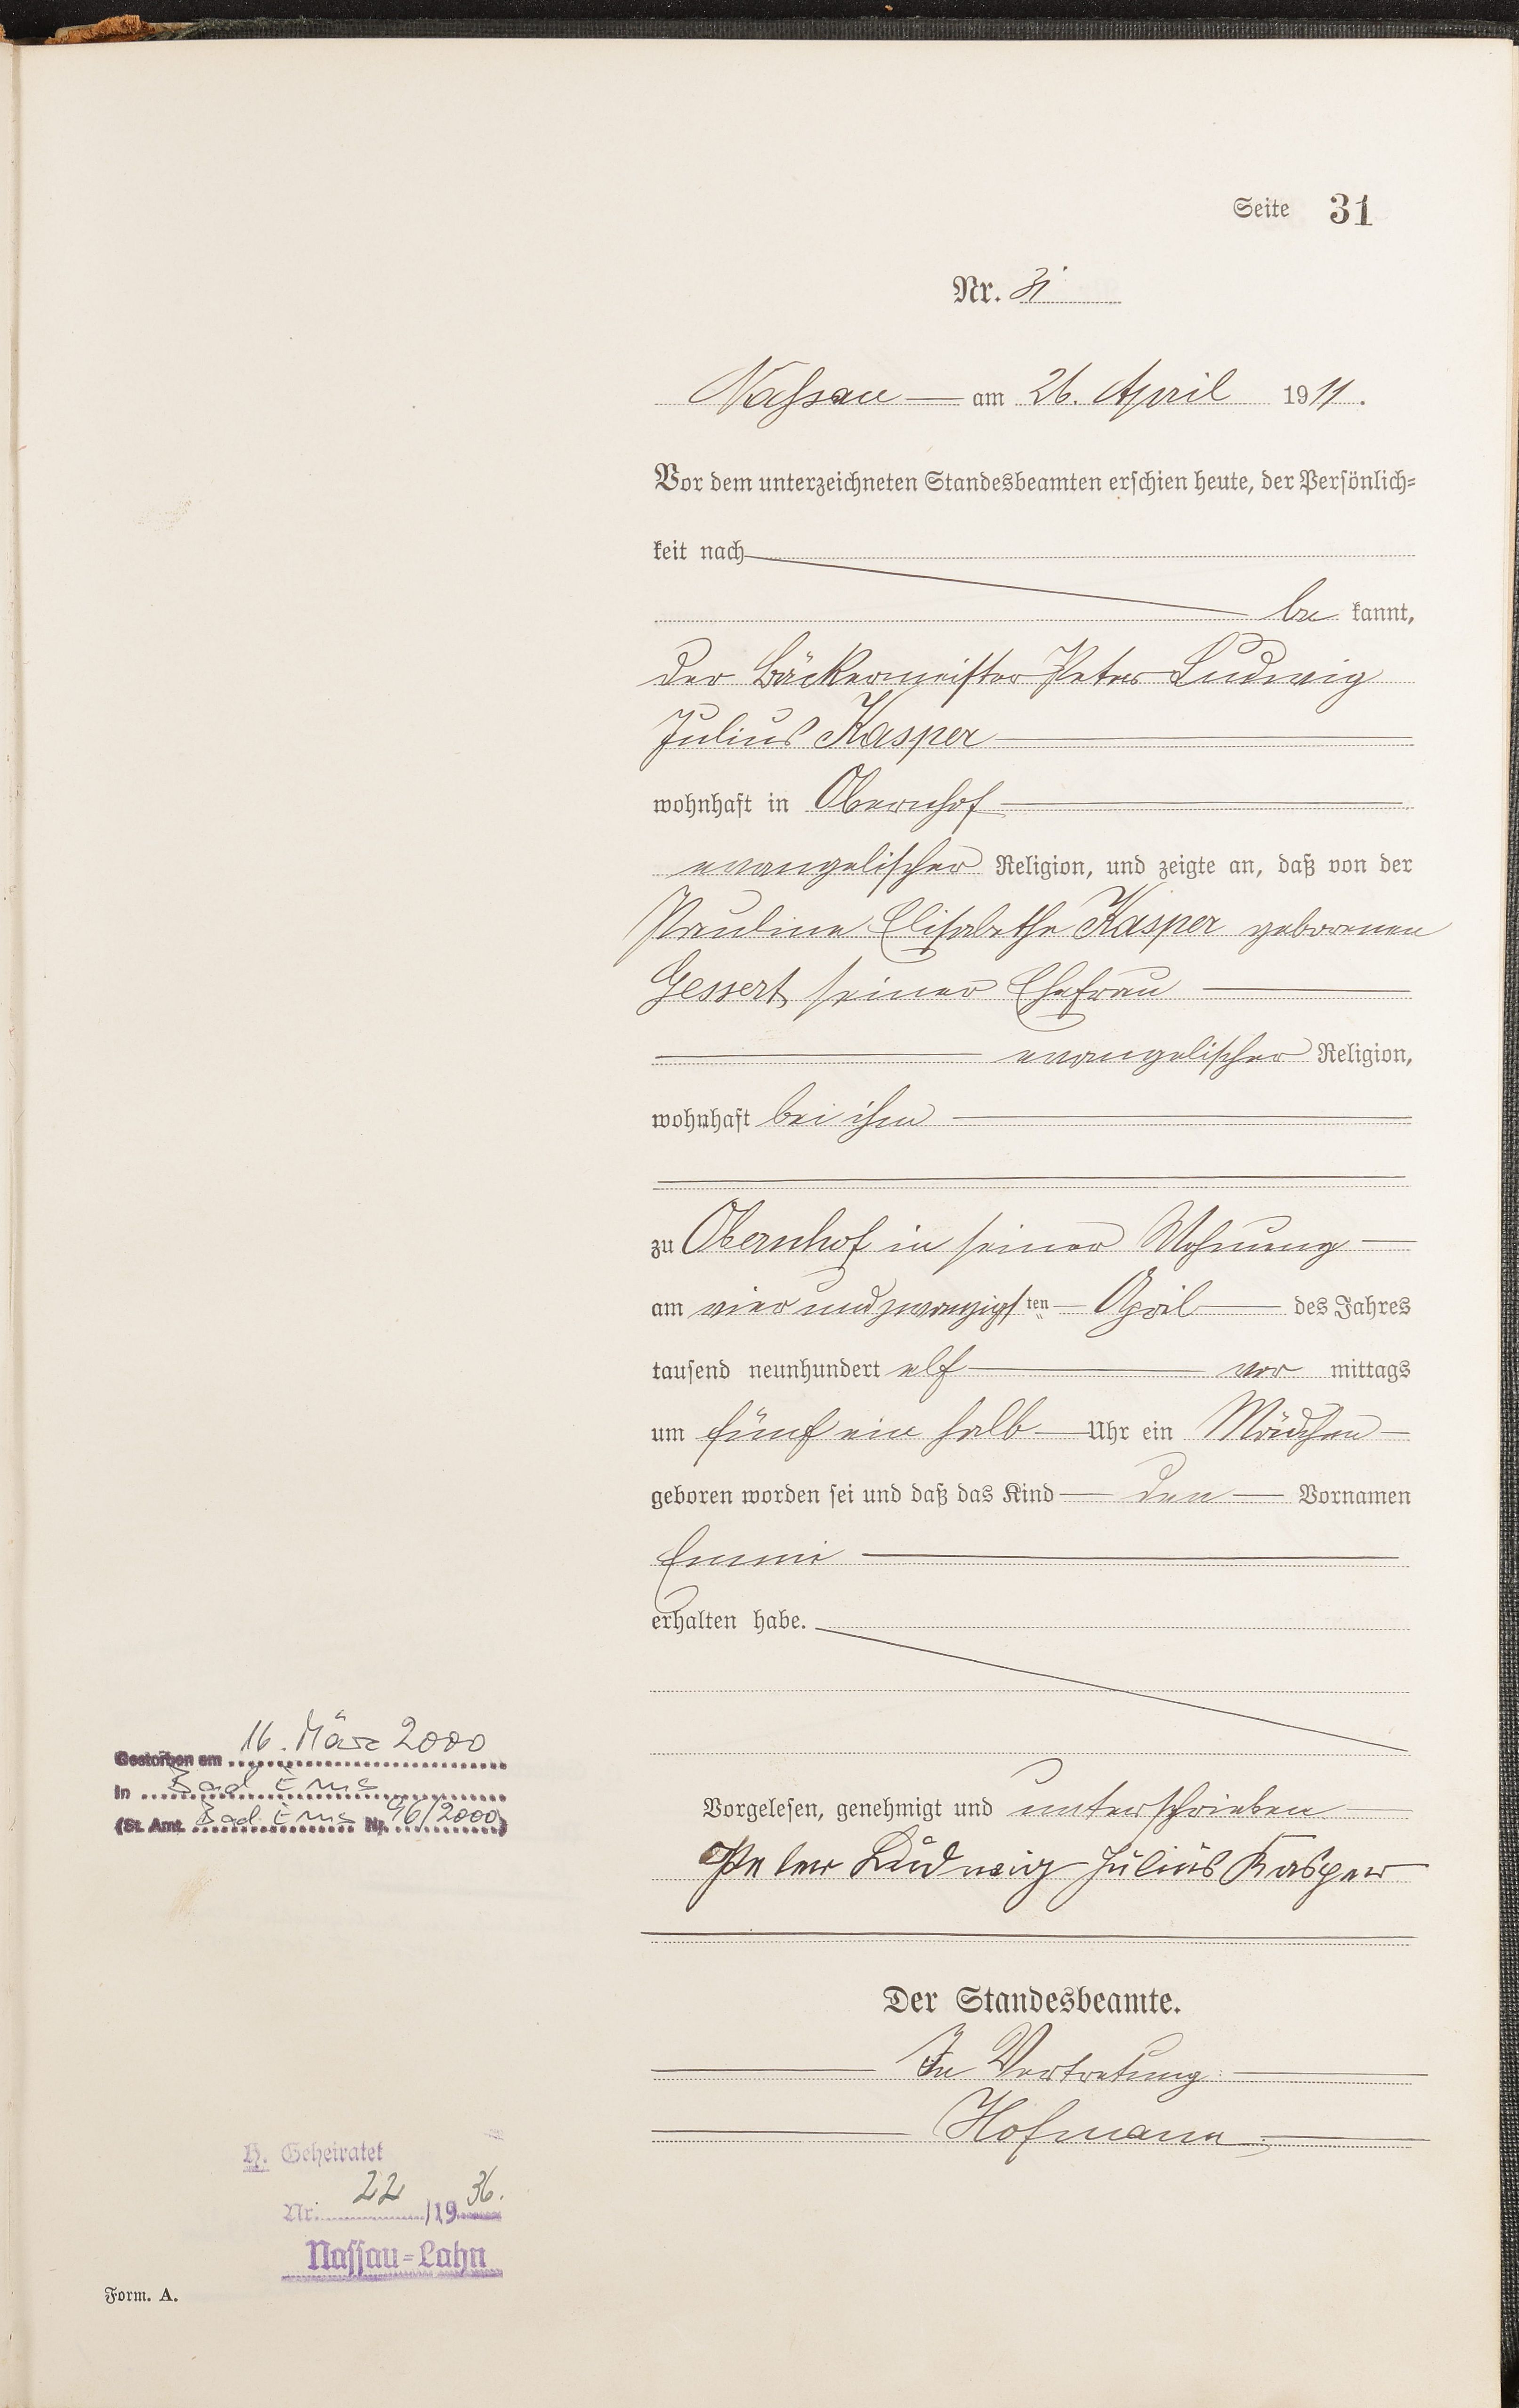 Seite 31
Nr. 31
Nassau am 26. April 1911.
Vor dem unterzeichneten Standesbeamten erschien heute, der Persönlich=
keit nach
be kannt,
der Bäckermeister Peter Ludwig
Julius Kasper
wohnhaft in Obernhof
evangelischer Religion, und zeigte an, daß von der
Pauline Elisabethe Kasper geborenen
Gessert, seiner Ehefrau
evangelischer Religion,
wohnhaft bei ihm
zu Obernhof in seiner Wohnung
am vier und zwanzigsten April des Jahres
tausend neunhundert elf vor mittags
um fünf ein halb Uhr ein Mädchen
geboren worden sei und daß das Kind den Vornamen
Emmi
erhalten habe.
Vorgelesen, genehmigt und unterschrieben
Peter Ludwig Julius Kasper
Der Standesbeamte.
In Vertretung
Hofmann
Gestorben am 16. März 2000
in Bad Ems
(St. Amt Bad Ems Nr. 96/2000)
H. Geheiratet
Nr. 22 /1936.
Nassau=Lahn
Form. A.